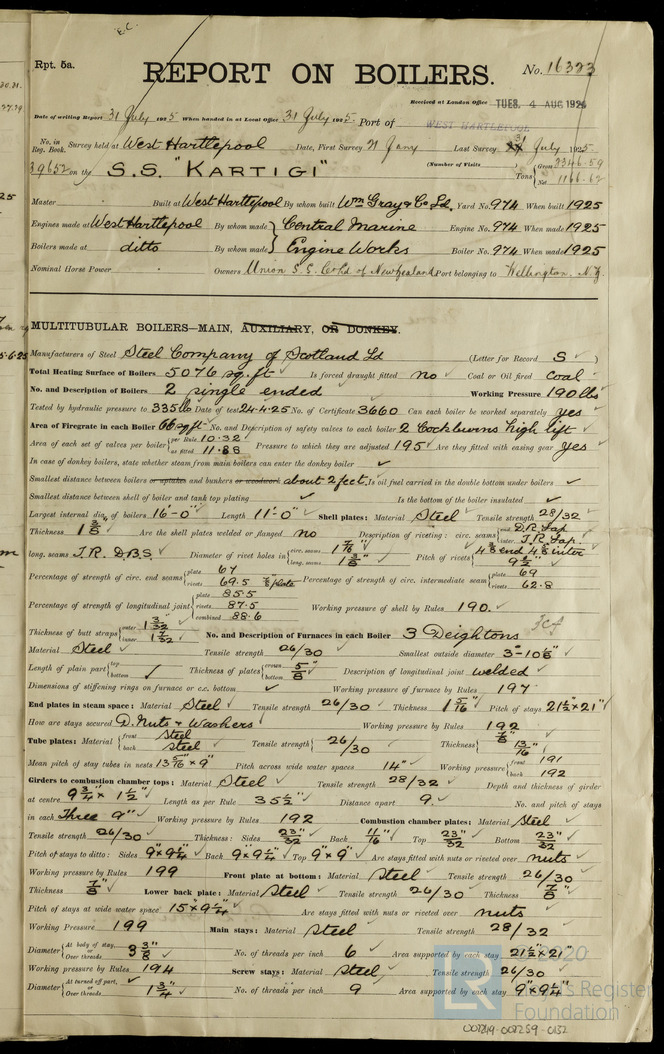 E.C.
Rpt. 5a.
REPORT ON BOILERS.
No. 16323
Received at London Office TUES. 4 AUG 1925
Date of writing Report 31 July 1925 When handed in at Local Office 31 July 1925. Port of WEST HARTLEPOOL
No. in Reg. Book. Survey held at West Hartlepool Date, First Survey 21 Jany Last Survey 31 July 1925
39652 on the S.S. "KARTIGI" (Number of Visits ) Tons { Gross 3346.59 Net 1166.62
Master Built at West Hartlepool By whom built Wm Gray & Co Ld. Yard No. 974 When built 1925
Engines made at West Hartlepool By whom made } Central Marine Engine No. 974 When made 1925
Boilers made at ditto By whom made } Engine Works Boiler No. 974 When made 1925
Nominal Horse Power Owners Union S.S. Co Ld of New Zealand Port belonging to Wellington. N.Z.
MULTITUBULAR BOILERS—MAIN, AUXILIARY, OR DONKEY.
Manufacturers of Steel Steel Company of Scotland Ld (Letter for Record S )
Total Heating Surface of Boilers 5076 sq. ft Is forced draught fitted no Coal or Oil fired coal
No. and Description of Boilers 2 single ended Working Pressure 190 lbs
Tested by hydraulic pressure to 335 lb Date of test 24.4.25 No. of Certificate 3660 Can each boiler be worked separately yes
Area of Firegrate in each Boiler 66 sq ft No. and Description of safety valves to each boiler 2 Cockburns high lift
Area of each set of valves per boiler { per Rule 10.32 as fitted 11.88 Pressure to which they are adjusted 195 Are they fitted with easing gear yes
In case of donkey boilers, state whether steam from main boilers can enter the donkey boiler ✓
Smallest distance between boilers or uptakes and bunkers or woodwork about 2 feet. Is oil fuel carried in the double bottom under boilers ✓
Smallest distance between shell of boiler and tank top plating ✓ Is the bottom of the boiler insulated ✓
Largest internal dia. of boilers 16'-0" Length 11'-0" Shell plates: Material Steel Tensile strength 28/32
Thickness 1 3/8" Are the shell plates welded or flanged no Description of riveting: circ. seams { end D.R. Lap inter. T.R. Lap.
long. seams T.R. D.B.S. Diameter of rivet holes in { circ. seams 1 7/16" long. seams 1 3/8" Pitch of rivets { 4 3/8 end 4 5/8 inter 9 1/2"
Percentage of strength of circ. end seams { plate 67 rivets 69.5 Percentage of strength of circ. intermediate seam { plate 69 rivets 62.8
Percentage of strength of longitudinal joint { plate 85.5 rivets 87.5 combined 88.6 Working pressure of shell by Rules 190.
Thickness of butt straps { outer 1 3/32" inner 1 7/32" No. and Description of Furnaces in each Boiler 3 Deightons
Material Steel Tensile strength 26/30 Smallest outside diameter 3'-10 1/8"
Length of plain part { top bottom ✓ Thickness of plates { crown bottom 5/8" Description of longitudinal joint welded
Dimensions of stiffening rings on furnace or c.c. bottom ✓ Working pressure of furnace by Rules 197
End plates in steam space: Material Steel Tensile strength 26/30 Thickness 1 5/16" Pitch of stays 21 1/2" x 21"
How are stays secured D. Nuts & Washers Working pressure by Rules 192
Tube plates: Material { front Steel back Steel Tensile strength { 26/30 Thickness { 7/8" 13/16"
Mean pitch of stay tubes in nests 13 5/16" x 9" Pitch across wide water spaces 14" Working pressure { front 191 back 192
Girders to combustion chamber tops: Material Steel Tensile strength 28/32 Depth and thickness of girder
at centre 9 3/4" x 1 1/2" Length as per Rule 35 1/2" Distance apart 9" No. and pitch of stays
in each Three 9" Working pressure by Rules 192 Combustion chamber plates: Material Steel
Tensile strength 26/30 Thickness: Sides 23/32" Back 11/16" Top 23/32 Bottom 23/32"
Pitch of stays to ditto: Sides 9" x 9 1/4" Back 9" x 9 1/4" Top 9" x 9" Are stays fitted with nuts or riveted over nuts
Working pressure by Rules 199 Front plate at bottom: Material Steel Tensile strength 26/30
Thickness 7/8" Lower back plate: Material Steel Tensile strength 26/30 Thickness 7/8"
Pitch of stays at wide water space 15" x 9 1/4" Are stays fitted with nuts or riveted over nuts
Working Pressure 199 Main stays: Material Steel Tensile strength 28/32
Diameter { At body of stay, or Over threads 3 3/8" No. of threads per inch 6 Area supported by each stay 21 1/2" x 21"
Working pressure by Rules 194 Screw stays: Material Steel Tensile strength 26/30
Diameter { At turned off part, or Over threads 1 3/4" No. of threads per inch 9 Area supported by each stay 9" x 9 1/4"
© 2020
LR Lloyd's Register
Foundation
007249-007259-0132